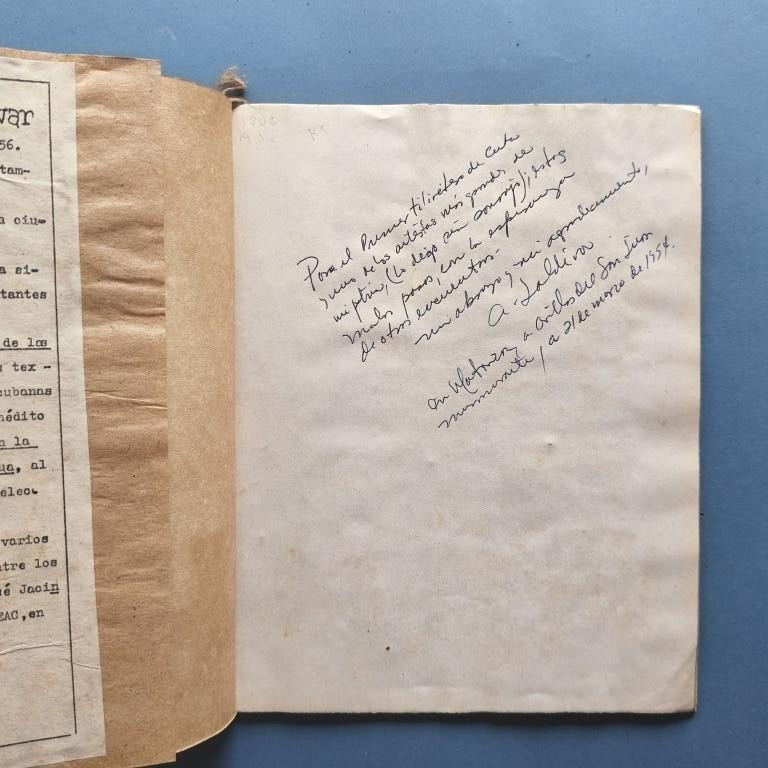 var
56.
tam-
a ciu-
a si-
tantes
de los
s tex -
cubanas
nédito
n la
ua, al
elec.
varios
ntre los
sé Jacin
EAC, en
Para el Primer titiritero de Cuba
y uno de los artistas más grandes de
mi patria, (lo digo sin sonrojo), estos
malos panes, con la esperanza
de otros encuentros.
mi abrazo y mi agradecimiento,
A. Zaldívar
en Matanzas, a orillas del San Juan
a 21 de marzo de 1994.